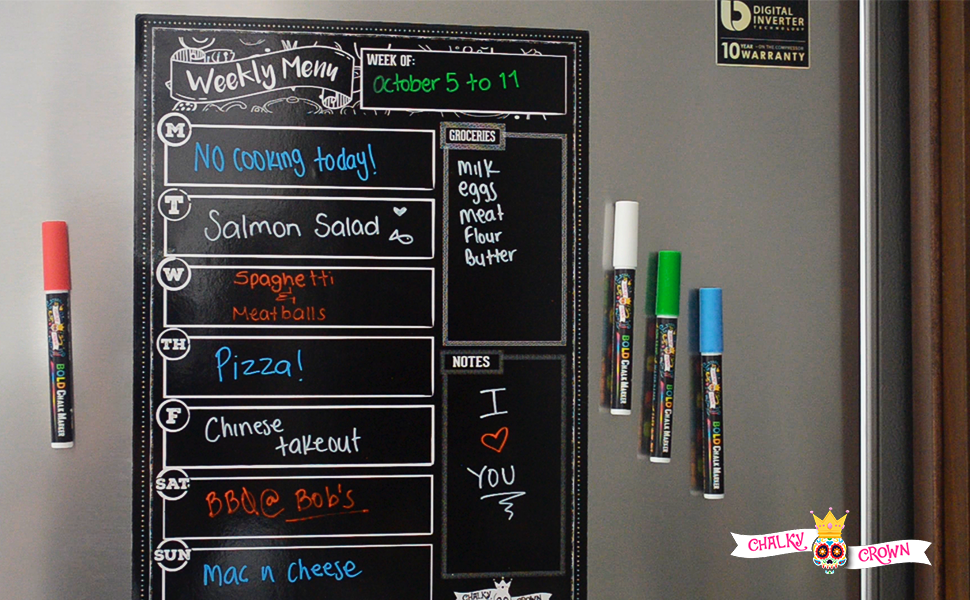 DIGITAL
INVERTER
TECHNOLOGY
10 YEAR - ON THE COMPRESSOR
WARRANTY
Weekly Menu
WEEK OF:
October 5 to 11
M
NO cooking today!
T
Salmon Salad
W
Spaghetti
&
Meatballs
TH
Pizza!
F
Chinese
takeout
SAT
BBQ@ Bob's
SUN
Mac n cheese
GROCERIES
Milk
eggs
Meat
Flour
Butter
NOTES
I
YOU
CHALKY CROWN
BOLD CHALK MARKER
BOLD CHALK MARKER
BOLD CHALK MARKER
BOLD CHALK MARKER
CHALKY CROWN